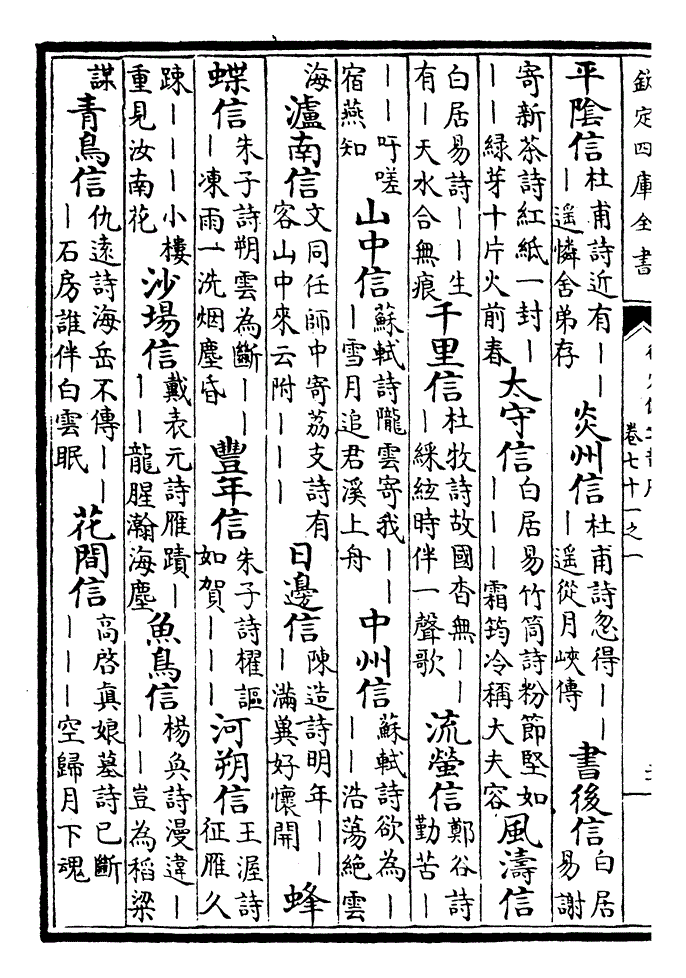 欽定四庫全書
卷七十一之一
平陰信杜甫詩近有｜｜｜遥憐舍弟存炎州信杜甫詩忽得｜｜｜遥從月峽傳書後信白居易謝
寄新茶詩紅紙一封｜｜｜緑芽十片火前春太守信白居易竹筒詩粉節堅如｜｜｜霜筠冷稱大夫容風濤信
白居易詩｜｜生有｜天水合無痕千里信杜牧詩故國杳無｜｜｜綵絃時伴一聲歌流螢信鄭谷詩勤苦｜
｜｜吁嗟宿燕知山中信蘇軾詩隴雲寄我｜｜｜雪月追君溪上舟中州信蘇軾詩欲為｜｜｜浩蕩絶雲
海瀘南信文同任師中寄荔支詩有客山中來云附｜｜｜日邊信陳造詩明年｜｜｜滿冀好懷開蜂
蝶信朱子詩朔雲為斷｜｜｜凍雨一洗烟塵昏豐年信朱子詩櫂謳如賀｜｜｜河朔信王渥詩征雁久
踈｜｜｜小樓重見汝南花沙場信戴表元詩雁蹟｜｜｜龍腥瀚海塵魚鳥信楊奐詩漫違｜｜｜豈為稻粱
謀青鳥信仇遠詩海岳不傳｜｜｜石房誰伴白雲眠花間信高啓真娘墓詩已斷｜｜｜空歸月下魂